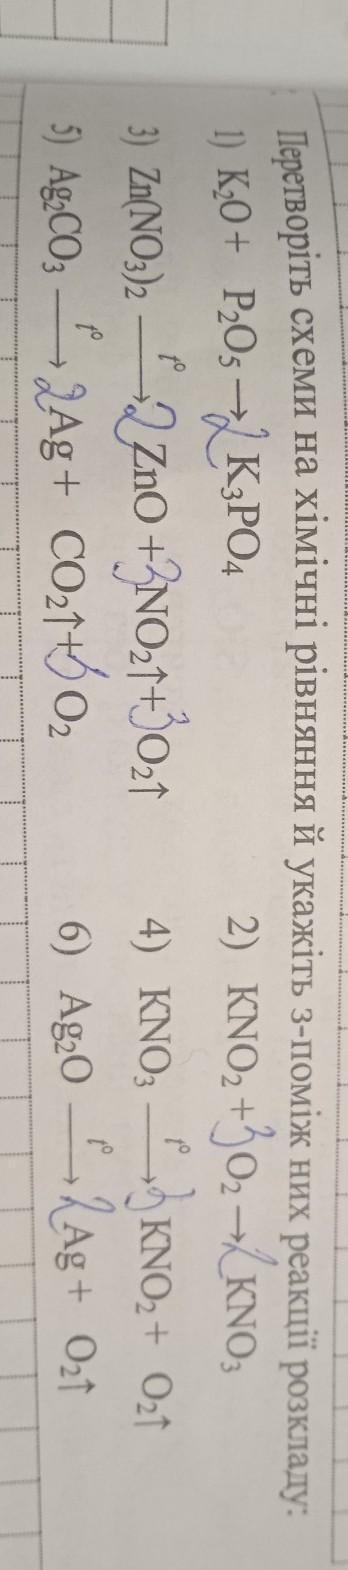 Перетворіть схеми на хімічні рівняння й укажіть з-поміж них реакції розкладу:
1) K₂O + P₂O₅ → 2 K₃PO₄ 2) KNO₂ + 3 O₂ → 2 KNO₃
3) Zn(NO₃)₂ —t°→ 2 ZnO + 3 NO₂↑ + 3 O₂↑ 4) KNO₃ —t°→ 3 KNO₂ + O₂↑
5) Ag₂CO₃ —t°→ 2 Ag + CO₂↑ + 3 O₂ 6) Ag₂O —t°→ 2 Ag + O₂↑